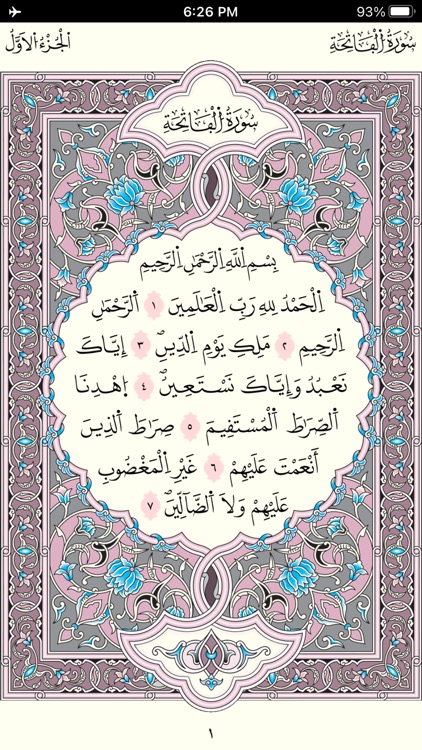 6:26 PM 93%
سُورَةُ اُ۬لْفَاتِحَةِ اَ۬لْجُزْءُ اُ۬لَاوَّلُ
سُورَةُ اُ۬لْفَاتِحَةِ
بِسْمِ اِ۬للَّهِ اِ۬لرَّحْمَٰنِ اِ۬لرَّحِيمِ
اِ۬لْحَمْدُ لِلهِ رَبِّ اِ۬لْعَٰلَمِينَ ١ اَ۬لرَّحْمَٰنِ
اِ۬لرَّحِيمِ ٢ مَلِكِ يَوْمِ اِ۬لدِّينِ ٣ إِيَّاكَ
نَعْبُدُ وَإِيَّاكَ نَسْتَعِينُ ٤ اُ۪هْدِنَا
اَ۬لصِّرَٰطَ اَ۬لْمُسْتَقِيمَ ٥ صِرَٰطَ اَ۬لذِينَ
أَنْعَمْتَ عَلَيْهِمْ ٦ غَيْرِ اِ۬لْمَغْضُوبِ
عَلَيْهِمْ وَلَا اَ۬لضَّآلِّينَ ٧
١